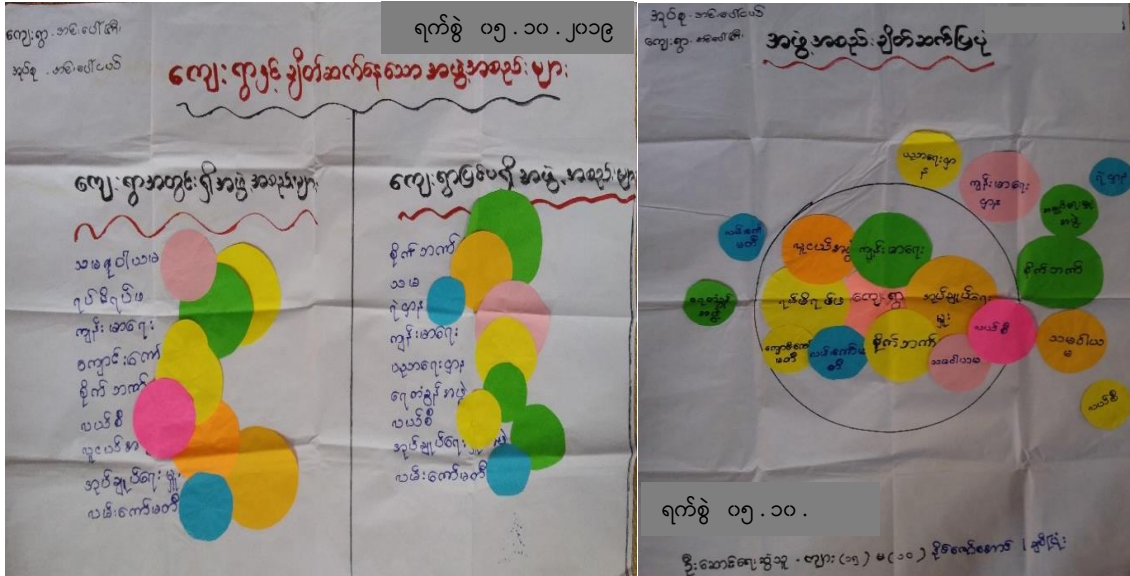 ကျေးရွာ - ဘင်းပေါ်
အုပ်စု - ဘင်းပေါ်ငယ်
ရက်စွဲ ၀၅.၁၀.၂၀၁၉
ကျေးရွာနှင့် ချိတ်ဆက်နေသော အဖွဲ့အစည်းများ
ကျေးရွာအတွင်းရှိအဖွဲ့အစည်းများ
သမဝါယမ
ရပ်မိရပ်ဖ
ကျန်းမာရေး
ကျောင်းကော်
စိုက်ဘဏ်
လယ်စီ
လူငယ်အ
အုပ်ချုပ်ရေးမှူး
လမ်းကော်မတီ
ကျေးရွာပြင်ပရှိအဖွဲ့အစည်းများ
စိုက်ဘဏ်
သမ
ရဲဌာန
ကျန်းမာရေး
ပညာရေးဌာန
ရေတံခွန်အဖွဲ့
လယ်စီ
အုပ်ချုပ်ရေး
လမ်းကော်မတီ
အုပ်စု - ဘင်းပေါ်ငယ်
ကျေးရွာ - ဘင်းပေါ်
အဖွဲ့အစည်းချိတ်ဆက်ပြပုံ
ပညာရေးဌာန
ကျန်းမာရေးဌာန
ရဲဌာန
အဖွဲ့
လမ်းကော်မတီ
စိုက်ဘဏ်
လူငယ်အဖွဲ့
ကျန်းမာရေး
ရပ်မိရပ်ဖ
ကျေးရွာ
အုပ်ချုပ်ရေးမှူး
ရေတံခွန်အဖွဲ့
လယ်စီ
သမဝါယမ
ကျောင်းကော်မတီ
လမ်းကော်မတီ
စိုက်ဘဏ်
သမဝါယမ
လယ်စီ
ရက်စွဲ ၀၅.၁၀.
ဦးဆောင်ရေးဆွဲသူ - ကျား (၁၅) မ (၁၀)